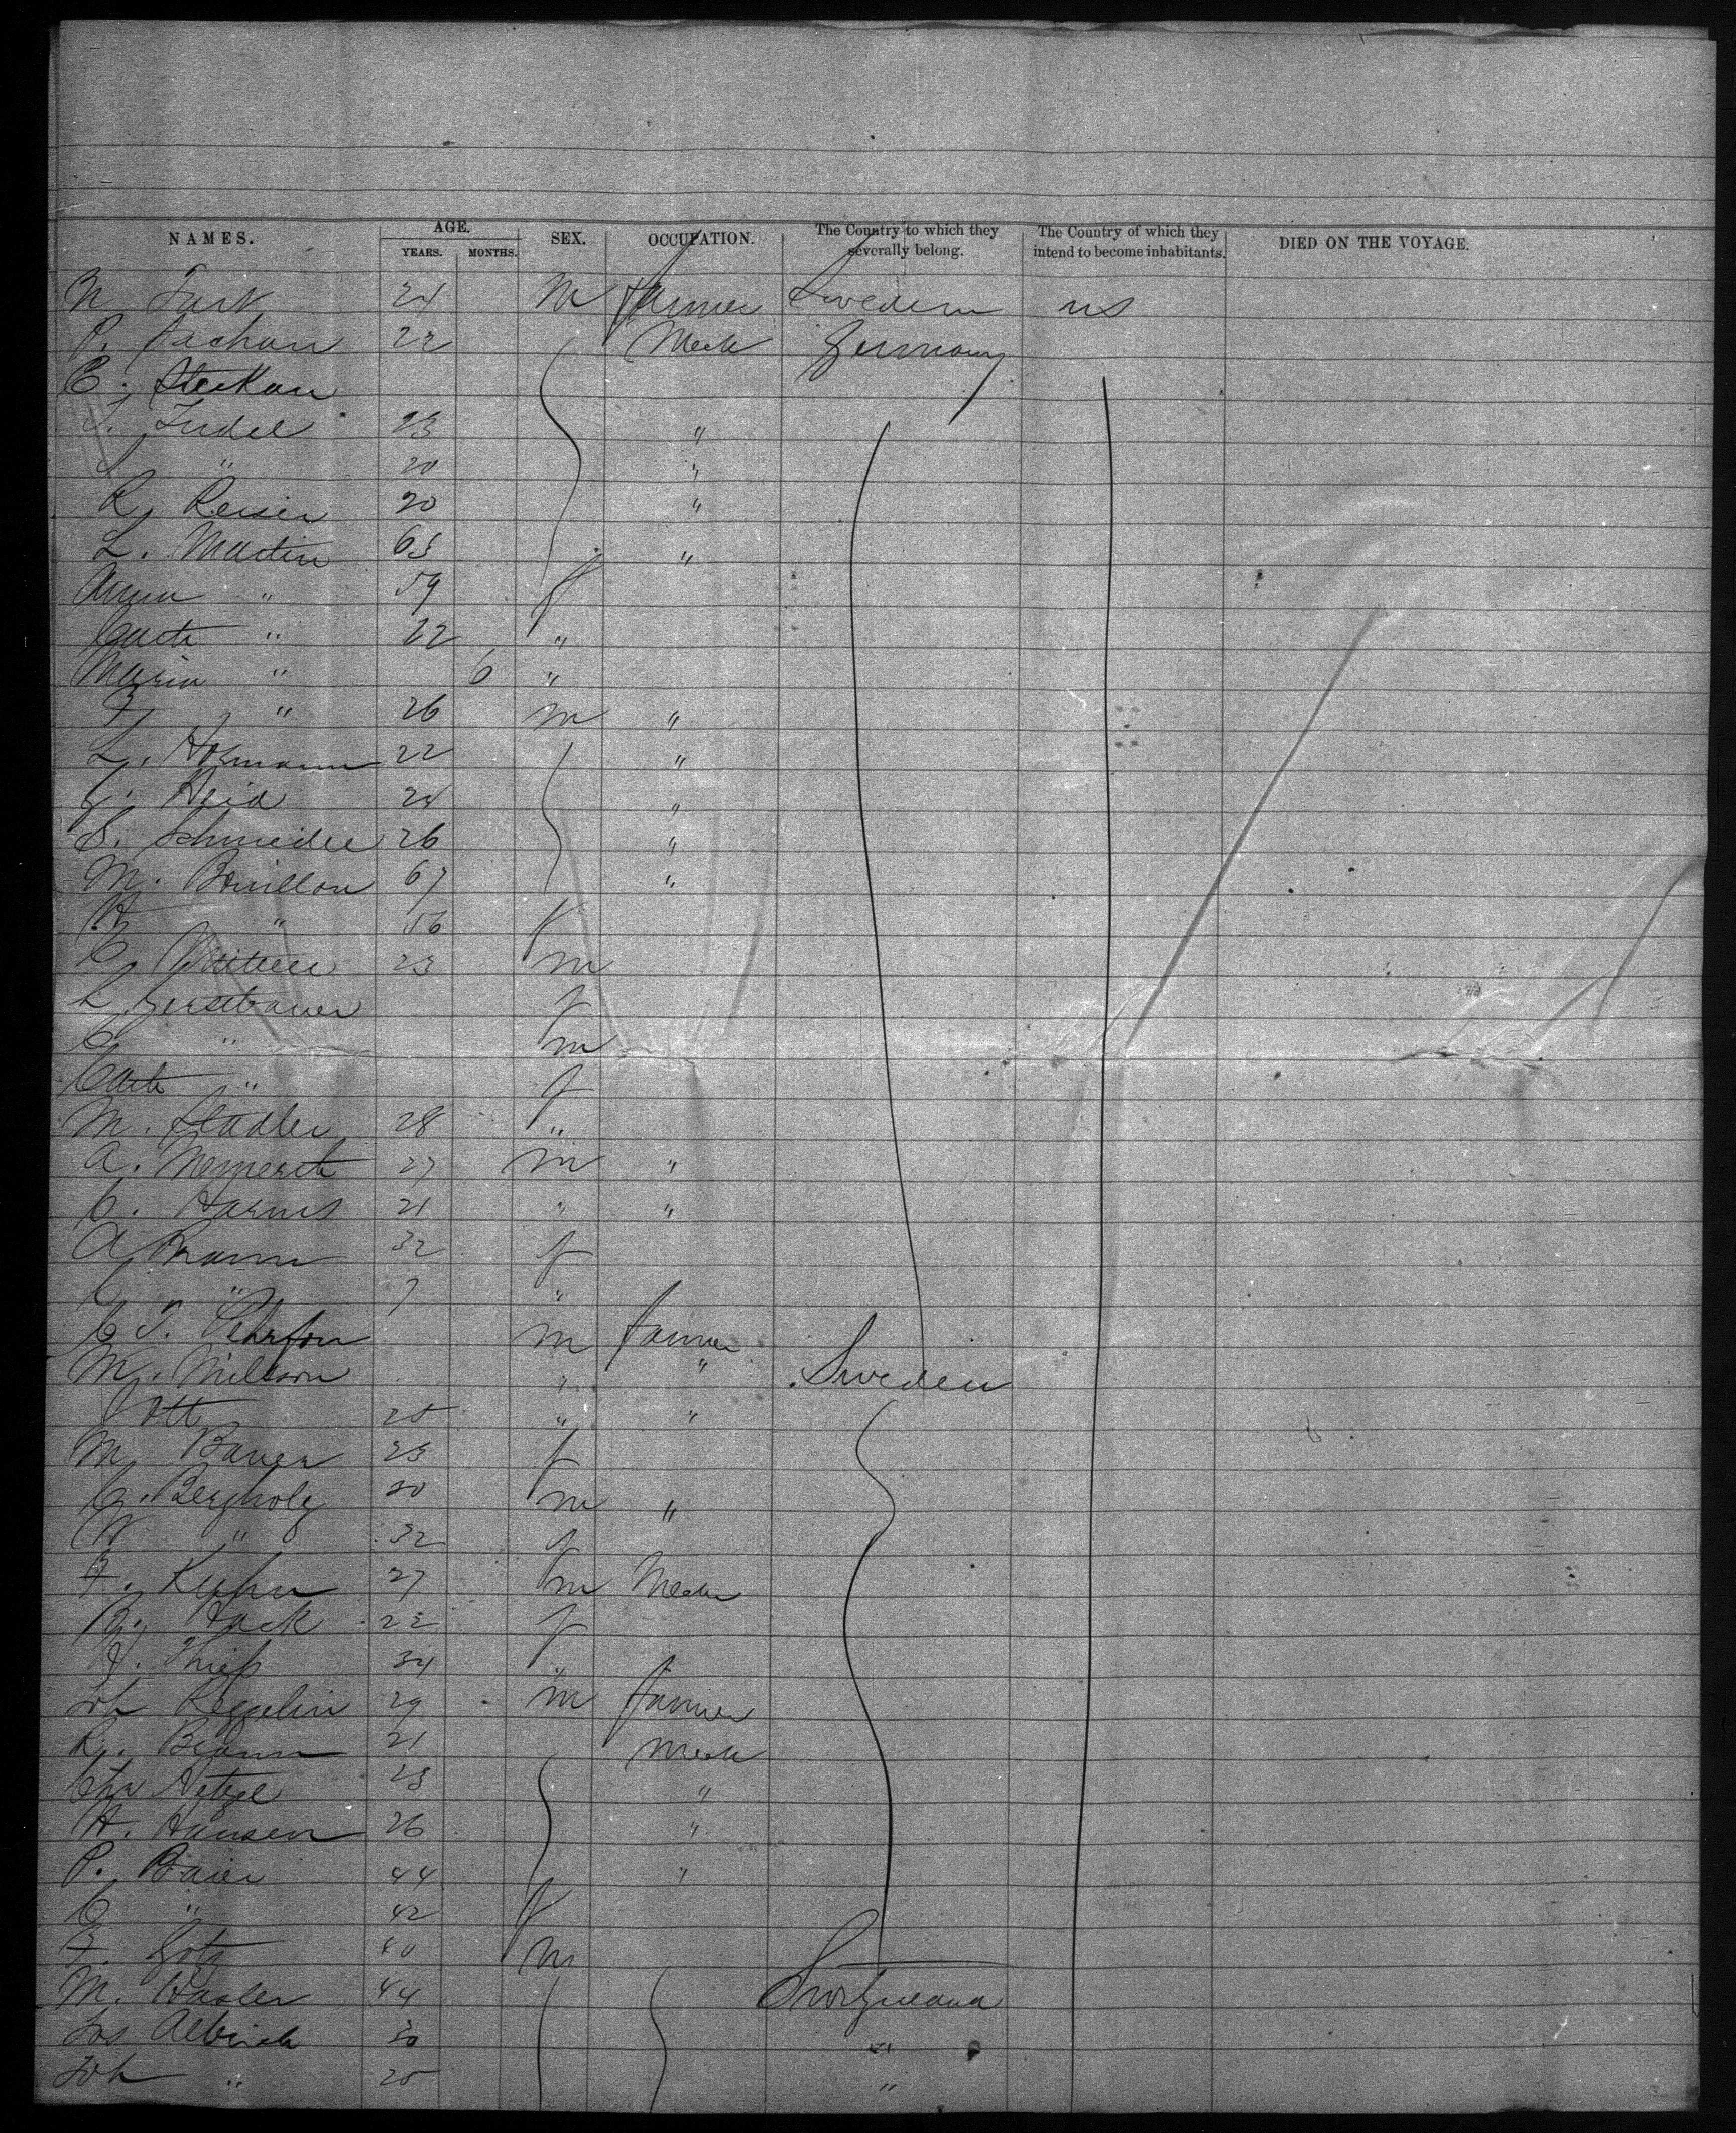 NAMES. AGE. YEARS. MONTHS. SEX. OCCUPATION. The Country to which they severally belong. The Country of which they intend to become inhabitants. DIED ON THE VOYAGE.
N 24 M Farmer Sweden us
P. 22 Mech Germany
E. Steckan
Fudel 23 "
" 20 "
R. Reiser 20 "
L. Martin 63 "
Anna " 59 f
Cath " 22 "
Maria " 6 "
F " 26 m "
L. Hosmann 22 "
G. Heid 24 "
S. Schneider 26 "
M. Bouillon 67 "
H " 56 f
C. 23 m
L. Gerstbauer f
C " m
Cath " f
M. Stadler 28 "
A. 27 m "
C. Harms 21 " "
A. 32 f
C " 7 "
C. T. Pehrson m farmer
M. Nilsson " " Sweden
Ott 25 " "
M. Bauer 23 f
C. Bergholz 30 m "
W " 32 f
F. Kuhn 27 m Mech
Hack 22 f
Thieß 34 "
Joh Reggelin 29 m farmer
R. 21 Mech
Chr Hetzel 23 "
H. Hansen 26 "
P. Baier 44 "
C " 42 f
F. Götz 40 m
M. Hasler 44
Jos Albrich 30 "
Joh " 25 "